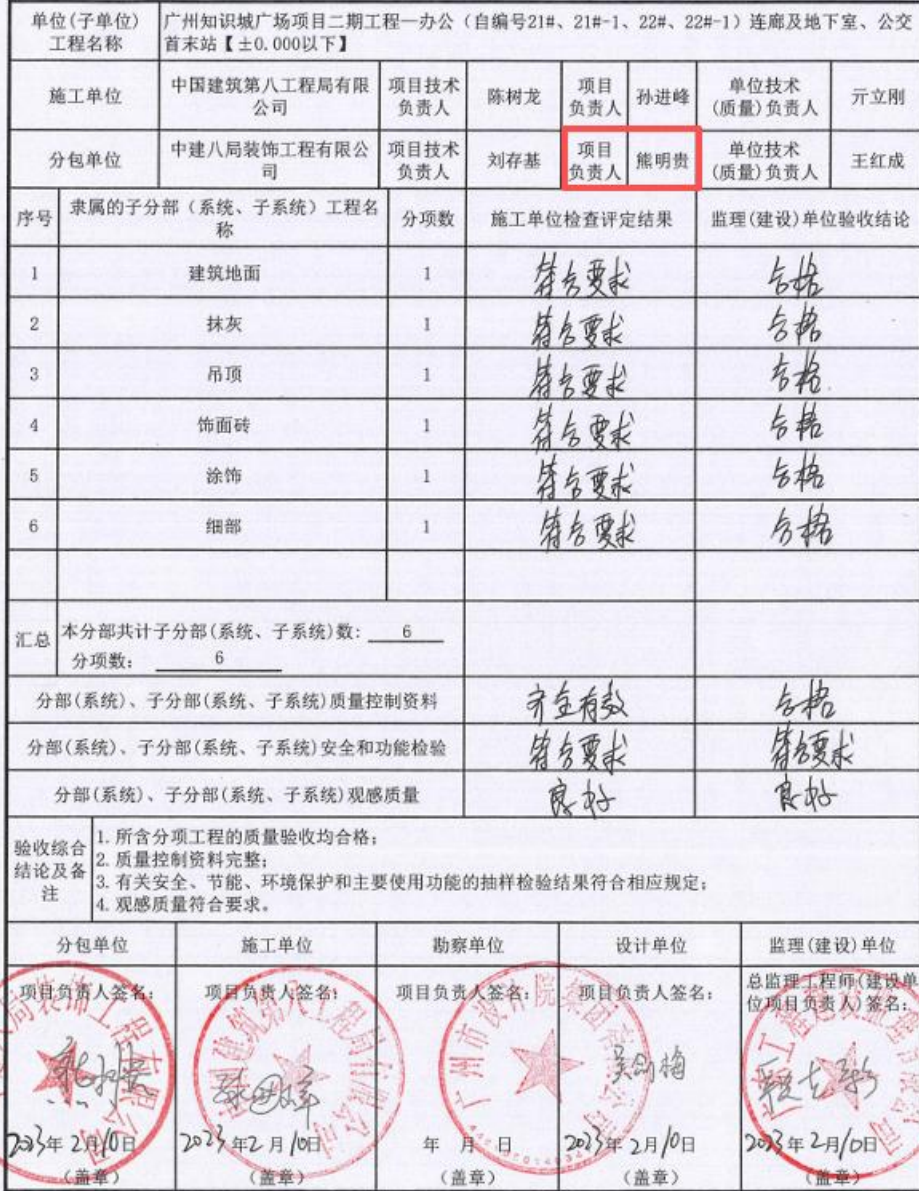 单位(子单位)工程名称 广州知识城广场项目二期工程—办公(自编号21#、21#-1、22#、22#-1)连廊及地下室、公交
首末站【±0.000以下】
施工单位 中国建筑第八工程局有限公司 项目技术负责人 陈树龙 项目负责人 孙进峰 单位技术(质量)负责人 亓立刚
分包单位 中建八局装饰工程有限公司 项目技术负责人 刘存基 项目负责人 熊明贵 单位技术(质量)负责人 王红成
序号 隶属的子分部(系统、子系统)工程名称 分项数 施工单位检查评定结果 监理(建设)单位验收结论
1 建筑地面 1 符合要求 合格
2 抹灰 1 符合要求 合格
3 吊顶 1 符合要求 合格
4 饰面砖 1 符合要求 合格
5 涂饰 1 符合要求 合格
6 细部 1 符合要求 合格
汇总 本分部共计子分部(系统、子系统)数: 6
分项数: 6
分部(系统)、子分部(系统、子系统)质量控制资料 齐全有效 合格
分部(系统)、子分部(系统、子系统)安全和功能检验 符合要求 符合要求
分部(系统)、子分部(系统、子系统)观感质量 良好 良好
验收综合结论及备注
1. 所含分项工程的质量验收均合格;
2. 质量控制资料完整;
3. 有关安全、节能、环境保护和主要使用功能的抽样检验结果符合相应规定;
4. 观感质量符合要求。
分包单位 施工单位 勘察单位 设计单位 监理(建设)单位
项目负责人签名: 项目负责人签名: 项目负责人签名: 项目负责人签名: 总监理工程师(建设单位项目负责人)签名:
2023年2月10日 2023年2月10日 年 月 日 2023年2月10日 2023年2月10日
(盖章) (盖章) (盖章) (盖章) (盖章)